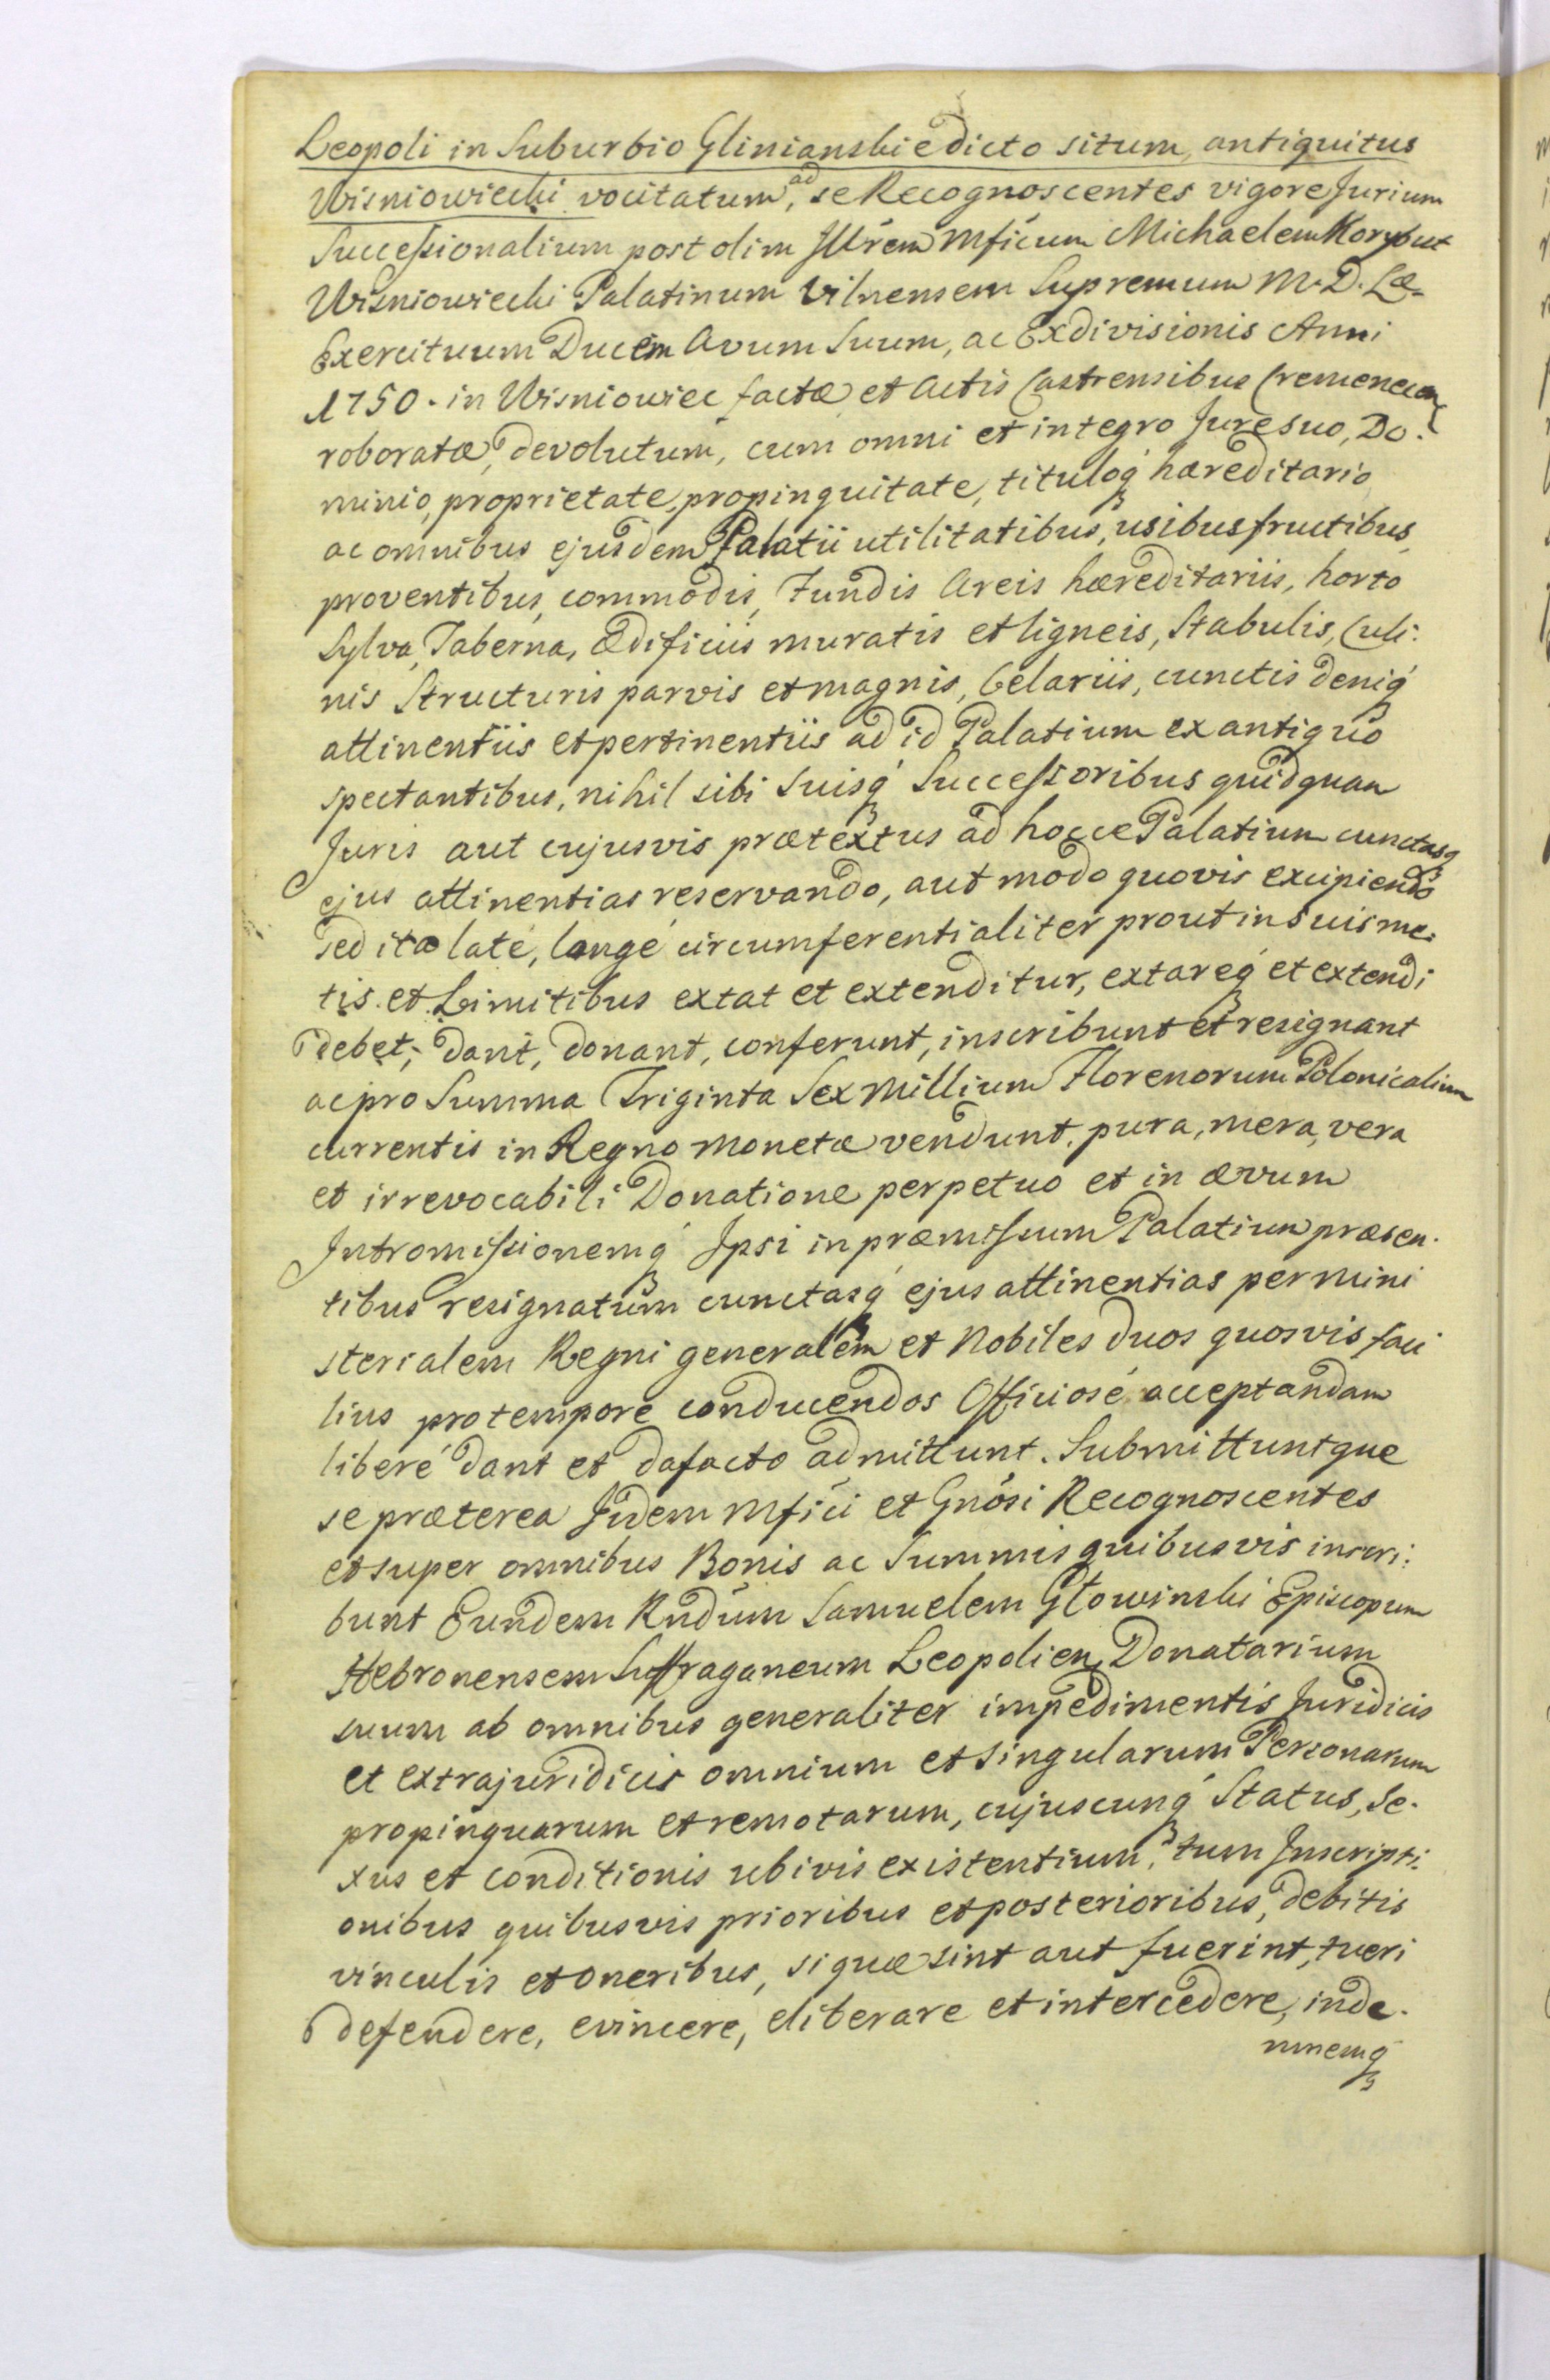 Leopoli in Suburbio Glinianskie dicto situm, antiquitus
Wisniowiecki vocitatum, ad se Recognoscentes vigore Jurium
Successionalium post olim Jllrem Mficum Michaelem Korybut
Wisniowiecki Palatinum Vilnensem Supremum M. D. Læ-
Exercituum Ducem Avum Suum, ac Exdivisionis Anni
1750. in Wisniowiec factæ et Actis Castrensibus Cremenecen
roboratæ, devolutum, cum omni et integro Jure suo, Do:
minio, proprietate, propinquitate, tituloq́ hæreditario
ac omnibus ejusdem Palatii utilitatibus, usibusfructibus,
proventibus, commodis, Fundis Areis hæreditariis, horto
Sylva, Taberna, Ædificiis muratis et ligneis, Stabulis, Culi:
nis Structuris parvis et magnis, Celariis, cunctis deniq́
attinentiis et pertinentiis ad id Palatium ex antiquo
spectantibus, nihil sibi suisq́ Successoribus quidquam
Juris aut cujusvis prætextus ad hocce Palatium cunctasq́
ejus attinentias reservando, aut modo quovis excipiendo
sed ita laté, longé circumferentialiter prout in suis me:
tis et Limitibus extat et extenditur, extareq́ et extendi
debet; dant, donant, conferunt, inscribunt et resignant
ac pro Summa Triginta Sex Millium Florenorum Polonicalium
currentis in Regno Monetæ vendunt, pura, mera, vera
et irrevocabili Donatione perpetuo et in ævum
Intromissionemq́ Ipsi in præmissum Palatium præsen.
tibus resignatum cunctasq́ ejus attinentias per Mini
sterialem Regni generalem et Nobiles duos quosvis faci
lius pro tempore conducendos Officiosé acceptandam
liberé dant et dafacto admittunt. Submittuntque
se præterea Jidem Mfici et Gnosi Recognoscentes
et super omnibus Bonis ac Summis quibusvis inscri:
bunt Eundem Rndum Samuelem Głowinski Episcopum
Hebronensem Suffraganeum Leopolien Donatarium
suum ab omnibus generaliter impedimentis Juridicis
et extrajuridicis omnium et singularum Personarum
propinquarum et remotarum, cujuscunq́ Status, Se-
xus et conditionis ubivis existentium, tum Inscripti:
onibus quibusvis prioribus et posterioribus, debitis
vinculis et oneribus, si quæ sint aut fuerint, tueri
defendere, evincere, eliberare et intercedere, inde-
mnemq́